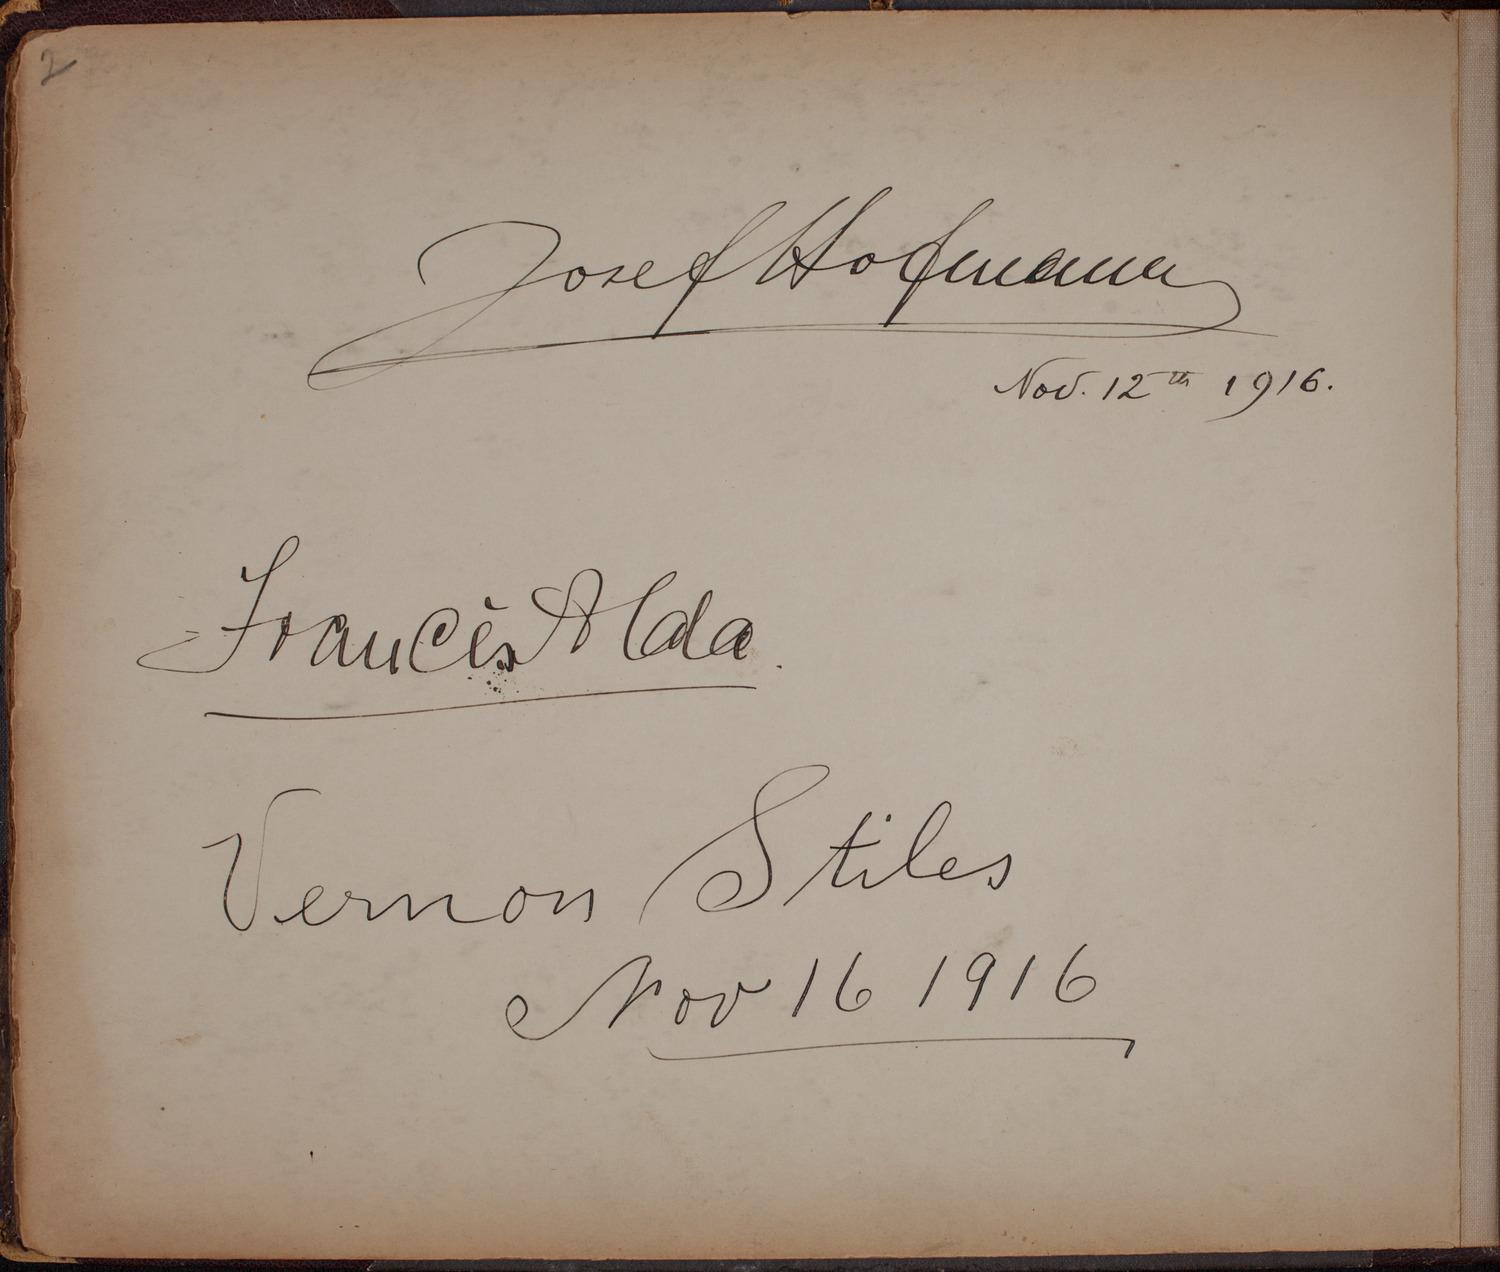 2
Josef Hofmann
Nov. 12th 1916.
Francès Alda.
Vernon Stiles
Nov 16 1916